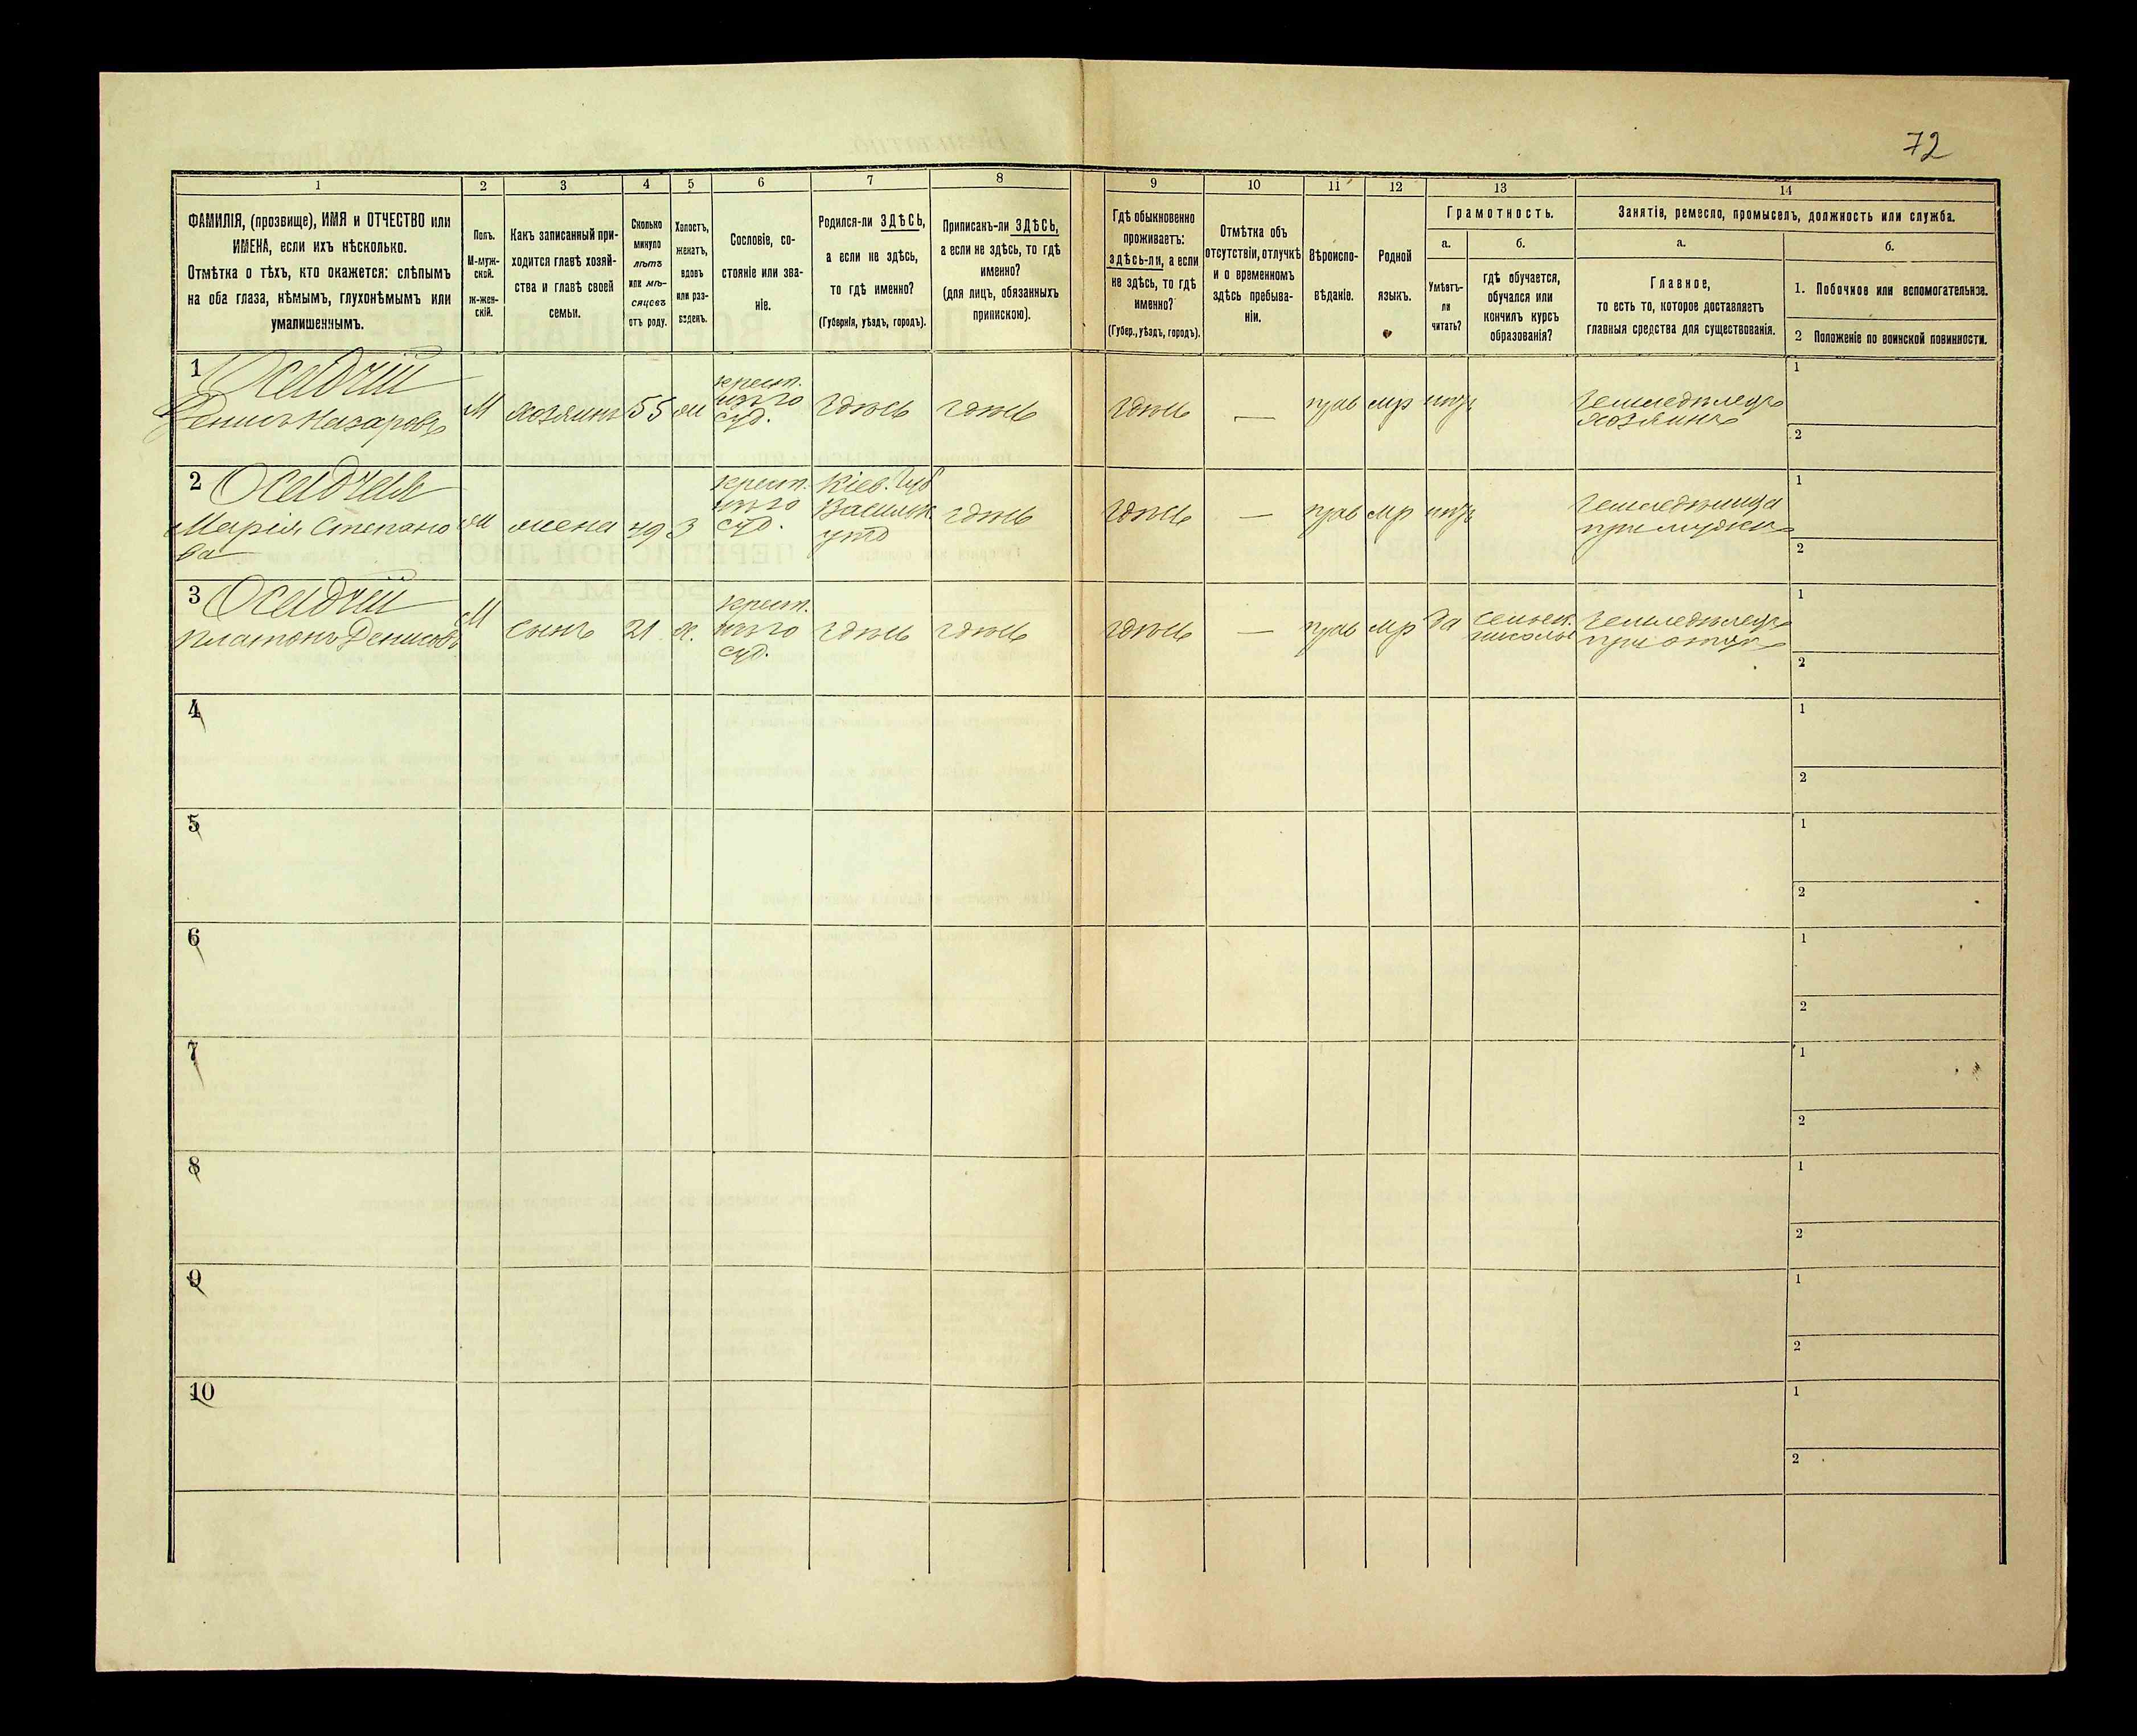 72
1
2
3
4
5
6
7
8
9
10
11
12
13
14
ФАМИЛІЯ, (прозвище), ИМЯ и ОТЧЕСТВО или
ИМЕНА, если ихъ нѣсколько.
Отмѣтка о тѣхъ, кто окажется: слѣпымъ
на оба глаза, нѣмымъ, глухонѣмымъ или
умалишеннымъ.
Полъ.
М-муж-
ской.
ж-жен-
скій.
Какъ записанный при-
ходится главѣ хозяй-
ства и главѣ своей
семьи.
Сколько
минуло
лѣтъ
или мѣ-
сяцевъ
отъ роду.
Холостъ,
женатъ,
вдовъ
или раз-
веденъ.
Сословіе, со-
стояніе или зва-
ніе.
Родился-ли ЗДѢСЬ,
а если не здѣсь,
то гдѣ именно?
(Губернія, уѣздъ, городъ).
Приписанъ-ли ЗДѢСЬ,
а если не здѣсь, то гдѣ
именно?
(для лицъ, обязанныхъ
припискою).
Гдѣ обыкновенно
проживаетъ:
здѣсь-ли, а если
не здѣсь, то гдѣ
именно?
(Губер., уѣздъ, городъ).
Отмѣтка объ
отсутствіи, отлучкѣ
и о временномъ
здѣсь пребыва-
ніи.
Вѣроиспо-
вѣданіе.
Родной
языкъ.
Грамотность.
а.
Умѣетъ-
ли
читать?
б.
гдѣ обучается,
обучался или
кончилъ курсъ
образованія?
Занятія, ремесло, промыселъ, должность или служба.
а.
Главное,
то есть то, которое доставляетъ
главныя средства для существованія.
б.
1. Побочное или вспомогательное.
2 Положеніе по воинской повинности.
1
Осадчій
Денисъ Назаровъ
М
хозяинъ
55
ж
крест.
изъ го
суд.
здѣсь
здѣсь
здѣсь
—
прав
мр
нѣтъ
Земледѣлецъ
хозяинъ
1
2
2
Осадчая
Марія Степано
ва
ж
жена
49
З
крест.
изъ го
суд.
Кіев. губ
Васильк.
уѣзд
здѣсь
здѣсь
—
прав
мр
нѣтъ
Земледѣлица
при мужѣ
1
2
3
Осадчій
Платонъ Денисовъ
М
сынъ
21
х.
крест.
изъ го
суд.
здѣсь
здѣсь
здѣсь
—
прав
мр
да
сельск.
школы
Земледѣлецъ
при отцѣ
1
2
4
1
2
5
1
2
6
1
2
7
1
2
8
1
2
9
1
2
10
1
2